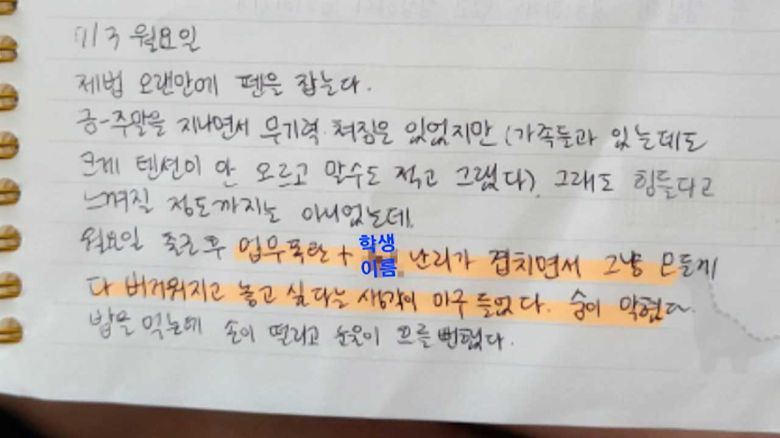 7/3 월요일
제법 오랜만에 펜을 잡는다.
금-주말을 지나면서 무기력·처짐은 있었지만 (가족들과 있는데도
크게 텐션이 안 오르고 말수도 적고 그랬다), 그래도 힘들다고
느껴질 정도까지는 아니었는데,
월요일 출근 후 업무폭탄 + 학생 이름 난리가 겹치면서 그냥 모든게
다 버거워지고 놓고 싶다는 생각이 마구 들었다. 숨이 막혔다.
밥을 먹는데 손이 떨리고 눈물이 흐를 뻔했다.